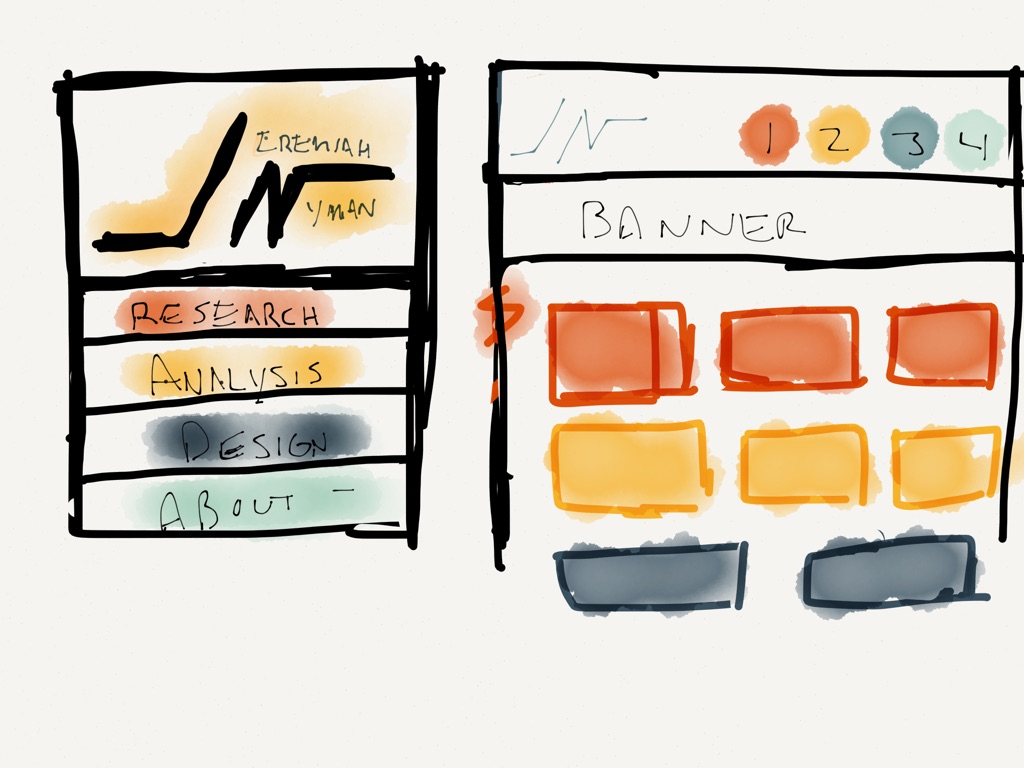 JEREMIAH
NYMAN
RESEARCH
ANALYSIS
DESIGN
ABOUT
JN 1 2 3 4
BANNER